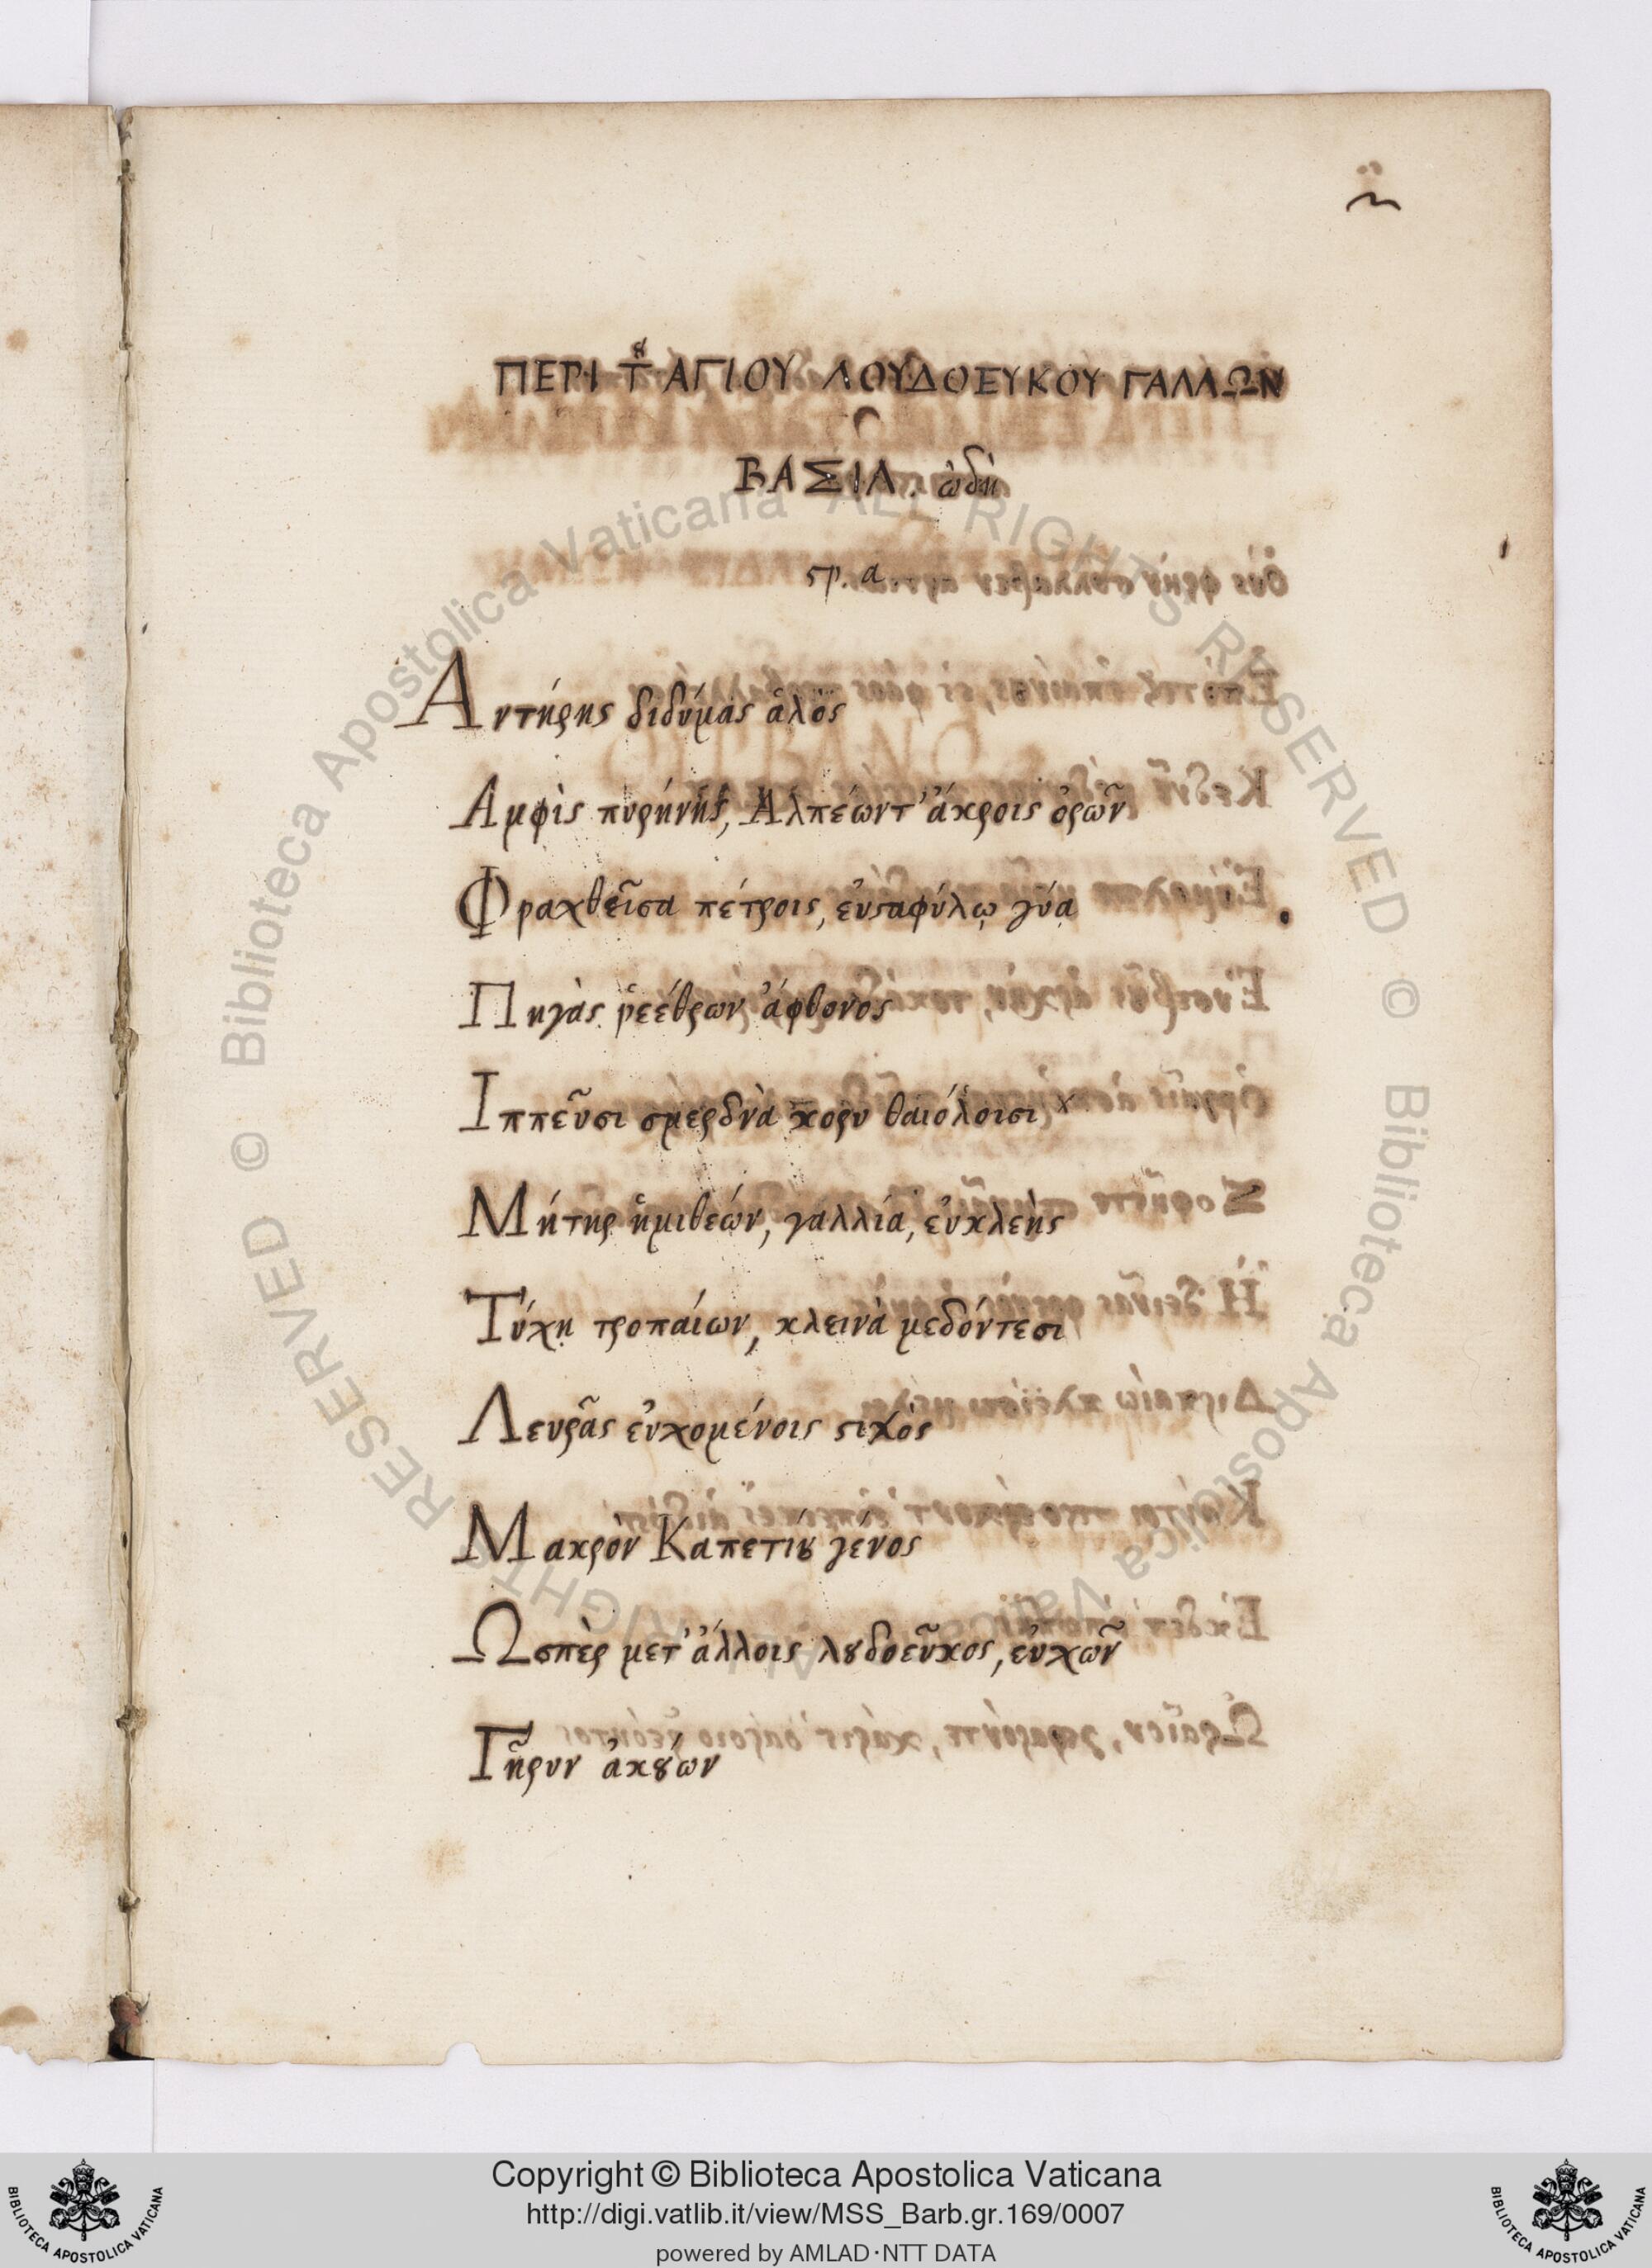 ΠΕΡΙ Τȣ͂ ΑΓΙΟΥ ΛΟΥΔΟΕΥΚΟΥ ΓΑΛΛΩΝ
ΒΑΣΙΛ. ὠδὴ
ϛρ. α.
Αντήρης διδύμας ἁλὸς
Αμφὶς πυρήνης, Αλπέωντ' ἄκροις ὀρῶν
Φραχθεῖσα πέτροις, εὐϛαφύλῳ γύᾳ
Πηγὰς ῥεέθρων ἄφθονος
Ιππεῦσι σμερδνὰ κορυ θαιόλοισι
Μήτηρ ἡμιθεών, γαλλία, εὐκλεὴς
Τύχη τροπαίων, κλεινὰ μεδόντεσι
Λευρᾶς εὐχομένοις ϛιχὸς
Μακρὸν Καπετίȣ γένος
Ωσπὲρ μετ' ἄλλοις λȣδοεῦκος, εὐχῶν
Γῆρυν ἀκȣών
Copyright © Biblioteca Apostolica Vaticana
http://digi.vatlib.it/view/MSS_Barb.gr.169/0007
powered by AMLAD·NTT DATA
BIBLIOTECA APOSTOLICA VATICANA
BIBLIOTECA APOSTOLICA VATICANA
© Biblioteca Apostolica Vaticana ALL RIGHTS RESERVED © Biblioteca Apostolica Vaticana ALL RIGHTS RESERVED